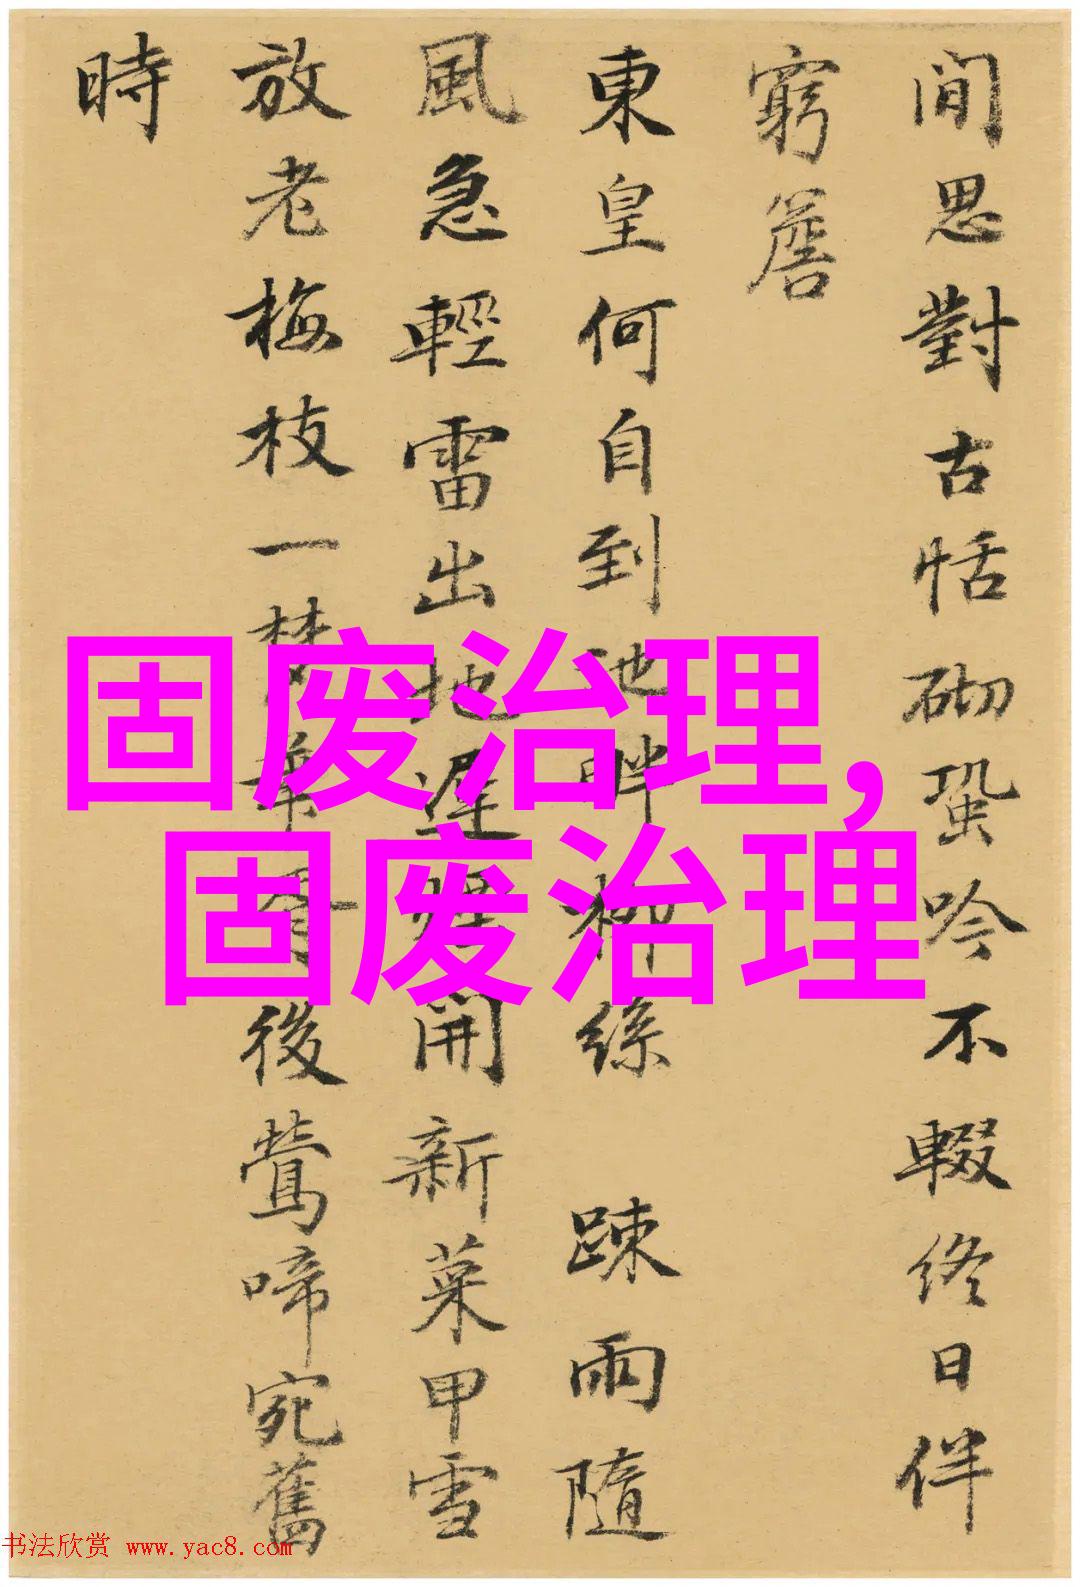 閒思對古恬砌蛩吟不輟終日伴
窮簷
東皇何自到池畔柳絲 踈雨隨
風急輕雷出地遲 開新菜甲雪
放老梅枝一夢華胥後鶯啼宛舊
時
固废治理，
固废治理
书法欣赏 www.yac8.com